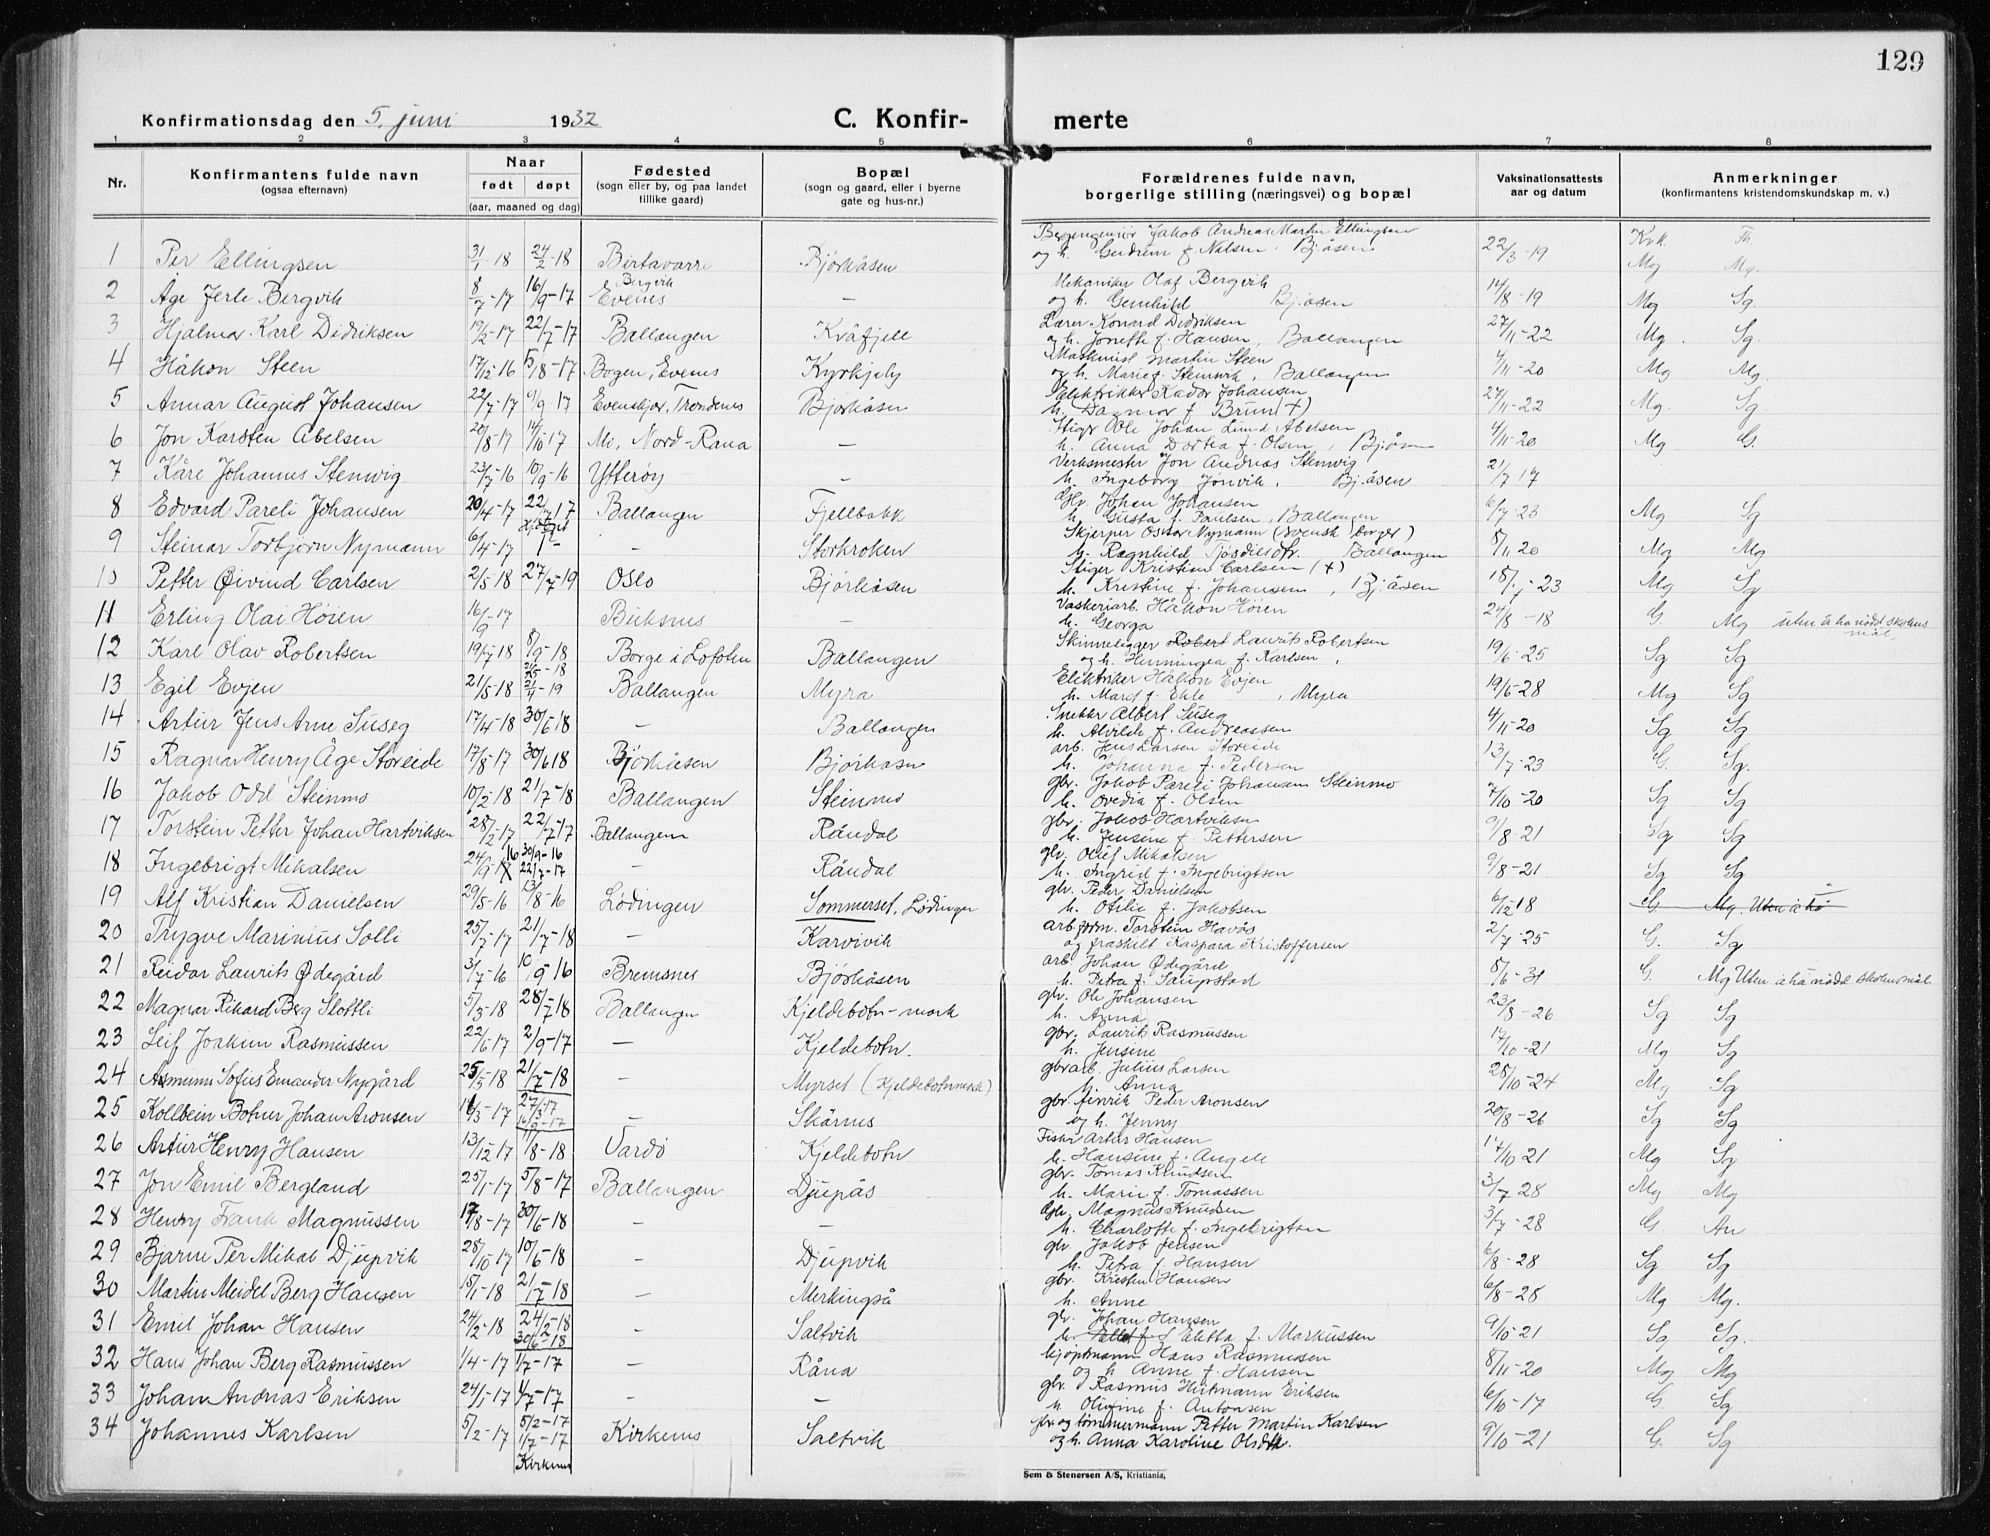 129
Konfirmationsdag den 5. juni 1932 C. Konfir- merte
1 2 3 4 5 6 7 8
Nr. Konfirmantens fulde navn (ogsaa efternavn) Naar født døpt (aar, maaned og dag) Fødested (sogn eller by, og paa landet tillike gaard) Bopæl (sogn og gaard, eller i byerne gate og hus-nr.) Forældrenes fulde navn, borgerlige stilling (næringsvei) og bopæl Vaksinationsattests aar og datum Anmerkninger (konfirmantens kristendomskundskap m. v.)
1 Per Ellingsen 31/1-18 24/2-18 Birtavarre Bjørkåsen Bergingeniør Jakob Andreas Martin Ellingsen og h. Gudrun f. Nilsen. Bjåsen 22/3-19 Krk. Fh. Mg. Mg.
2 Åge Jerle Bergvik 8/7-17 16/9-17 Bergvik Evenes — Mekaniker Olaf Bergvik og h. Gunhild Bj.åsen 14/8-19 Mg Sg.
3 Hjalmar Karl Didriksen 19/2-17 22/7-17 Ballangen Kvåfjell Lærer Konrad Didriksen og h. Jonette f. Hansen, Ballangen 27/11-22 Mg. Sg.
4 Håkon Steen 17/12-16 5/8-17 Bogen, Evenes Kyrkjeby Maskinist Martin Steen og h. Marie f. Steinvik, Ballangen 4/11-20 Mg Mg.
5 Annar August Johansen 22/7-17 9/9-17 Evenskjer, Trondenes Bjørkåsen Elektrikker Kador Johansen h. Dagmar f. Brun (+) 27/11-22 Mg. Sg
6 Jon Karsten Abelsen 20/8-17 14/10-17 Mo, Nord-Rana — Stiger Ole Johan Lund Abelsen h. Anna Dortea f. Olsen, Bjåsen 4/11-20 Mg G.
7 Kåre Johannes Stenvig 23/7-16 10/9-16 Ytterøy — Verksmester Jon Andreas Stenvig h. Ingeborg Jonvik, Bj.åsen 21/7 17
8 Edvard Pareli Johansen 20/4-17 22/7 17 Ballangen Fjellbakk Gbr. Johan Johansen h. Gusta f. Paulsen, Ballangen 6/7-23 Mg Sg
9 Steinar Torbjørn Nymann 6/4-17 — Storkroken Skjerper Oskar Nymann (svensk borger) h. Ragnhild Tjøsdilsdtr. Ballangen 8/11 20 Mg Mg
10 Petter Øivind Carlsen 2/5-18 27/7-19 Oslo Bjørkåsen Stiger Kristian Carlsen (+) h. Kristine f. Johansen, Bj.åsen 18/1-23 Mg Sg
11 Erling Olai Høien 16/9-17 Buksnes — Vaskeriarb. Håkon Höien h. Georga 24/8-18 G. Mg uten å ha nådd skolens mål.
12 Karl Olav Robertsen 19/7 18 8/9-18 Borge i Lofoten Ballangen Skinnelegger Robert Laurits Robertsen og h. Henningea f. Karlsen, 19/6-25 Sg Sg
13 Egil Evjen 21/5-18 21/4-19 Ballangen Myra Elektriker Håkon Evjen h. Marit f. Ekle, Myra 19/6-28 Mg Sg
14 Artur Jens Arne Suseg 17/4-18 30/6 18 — Ballangen Snekker Albert Suseg h. Alvilde f. Andreassen 4/11-20 Sg Sg
15 Ragnar Henry Åge Storeide 17/8-17 30/6 18 Bjørkåsen Bjørkåsen arb. Jens Larsen Storeide h. Johanna f. Pedersen 13/7-23 G. Sg.
16 Jakob Odd Steinmo 10/2-18 21/7-18 Ballangen Steinmo gbr. Jakob Pareli Johansen Steinmo h. Ovedia f. Olsen 7/10-20 Sg Sg
17 Torstein Petter Johan Hartviksen 28/2-17 22/7-17 Ballangen Råndal gbr. Jakob Hartviksen h. Jensine f. Pettersen 9/8-21 Sg Sg
18 Ingebrigt Mikalsen 24/9-16 30/9-16 22/7-17 — Råndal gbr. Oluf Mikalsen h. Ingrid f. Ingebrigtsen 9/8-21 Sg Sg
19 Alf Kristian Danielsen 29/5-16 13/8-16 Lødingen Sommerset, Lødingen gbr. Peder Danielsen h. Otelie f. Jakobsen 6/12 18 G. Mg. Uten å ha
20 Trygve Marinius Solli 25/7-17 21/7-18 — Karvivik arb.form. Torstein Havås og fraskilt Kaspara Kristoffersen 2/7-25 G. Sg
21 Reidar Laurits Ødegård 3/7-16 10/9-16 Bremsnes Bjørkåsen arb. Johan Ødegård h. Petra f. Saupstad 8/6-31 G. Mg Uten å ha nådd skolens mål.
22 Magnar Rikard Berg Slottli 5/3-18 28/7 18 Ballangen Kjeldebotn-mark gbr. Ole Johansen h. Anna 23/8-26 Sg Sg
23 Leif Joakim Rasmussen 22/6-17 2/9-17 — Kjeldebotn. gbr. Laurits Rasmussen h. Jensine 14/10-21 Mg Sg
24 Asmunn Sofus Emander Nygård 25/5-18 21/7-18 — Myrset (Kjeldebotnmark) gbr.arb. Julius Larsen h. Anna 28/10-24 Mg Sg
25 Kollbein Botur Johan Aronsen 14/3-17 27/3-17 16/9-17 — Skårnes gbr. Hinrik Peder Aronsen og h. Jenny 20/8-26 Sg Sg
26 Artur Henry Hansen 13/12 17 11/8-18 Vardø Kjeldebotn Fisker Artur Hansen h. Hansine f. Angell 14/10 21 Mg Sg
27 Jon Emil Bergland 25/1-17 5/8-17 Ballangen Djupås gbr. Tomas Knudsen h. Marie f. Tomassen 3/7 28 Mg Mg
28 Henry Frank Magnussen 17/8-17 30/6-18 — — Gbr. Magnus Knudsen h. Charlotte f. Ingebrigtsen 3/7-28 G An
29 Bjarne Per Mikal Djupvik 28/10 17 10/6-18 — Djupvik gbr Jakob Jensen h. Petra f. Hansen 6/8-28 Sg Sg
30 Martin Meidel Berg Hansen 15/1-18 21/7-18 — Merkingså gbr. Kristen Hansen h. Anne 6/8-28 Mg Mg.
31 Emil Johan Hansen 24/2-18 24/2-18 30/6-18 — Saltvik gbr. Johan Hansen h. Eletta f. Markussen 9/10-21 Sg Sg.
32 Hans Johan Berg Rasmussen 1/4-17 1/7-17 — Råna kjøpmann Hans Rasmussen og h Anne f. Hansen 8/11-20 Mg Mg
33 Johan Andreas Eriksen 24/1-17 1/7-17 — — gbr. Rasmus Hitmann Eriksen h. Olivine f. Antonsen 6/10-17 G. Sg
34 Johannes Karlsen 5/2-17 5/2-17 1/7-17 Kirkenes Kirkenes Saltvik gbr og tømmermann Petter Martin Karlsen og h. Anna Karoline Olsdtr. 9/10-21 G. Sg
Sem & Stenersen A/S, Kristiania.